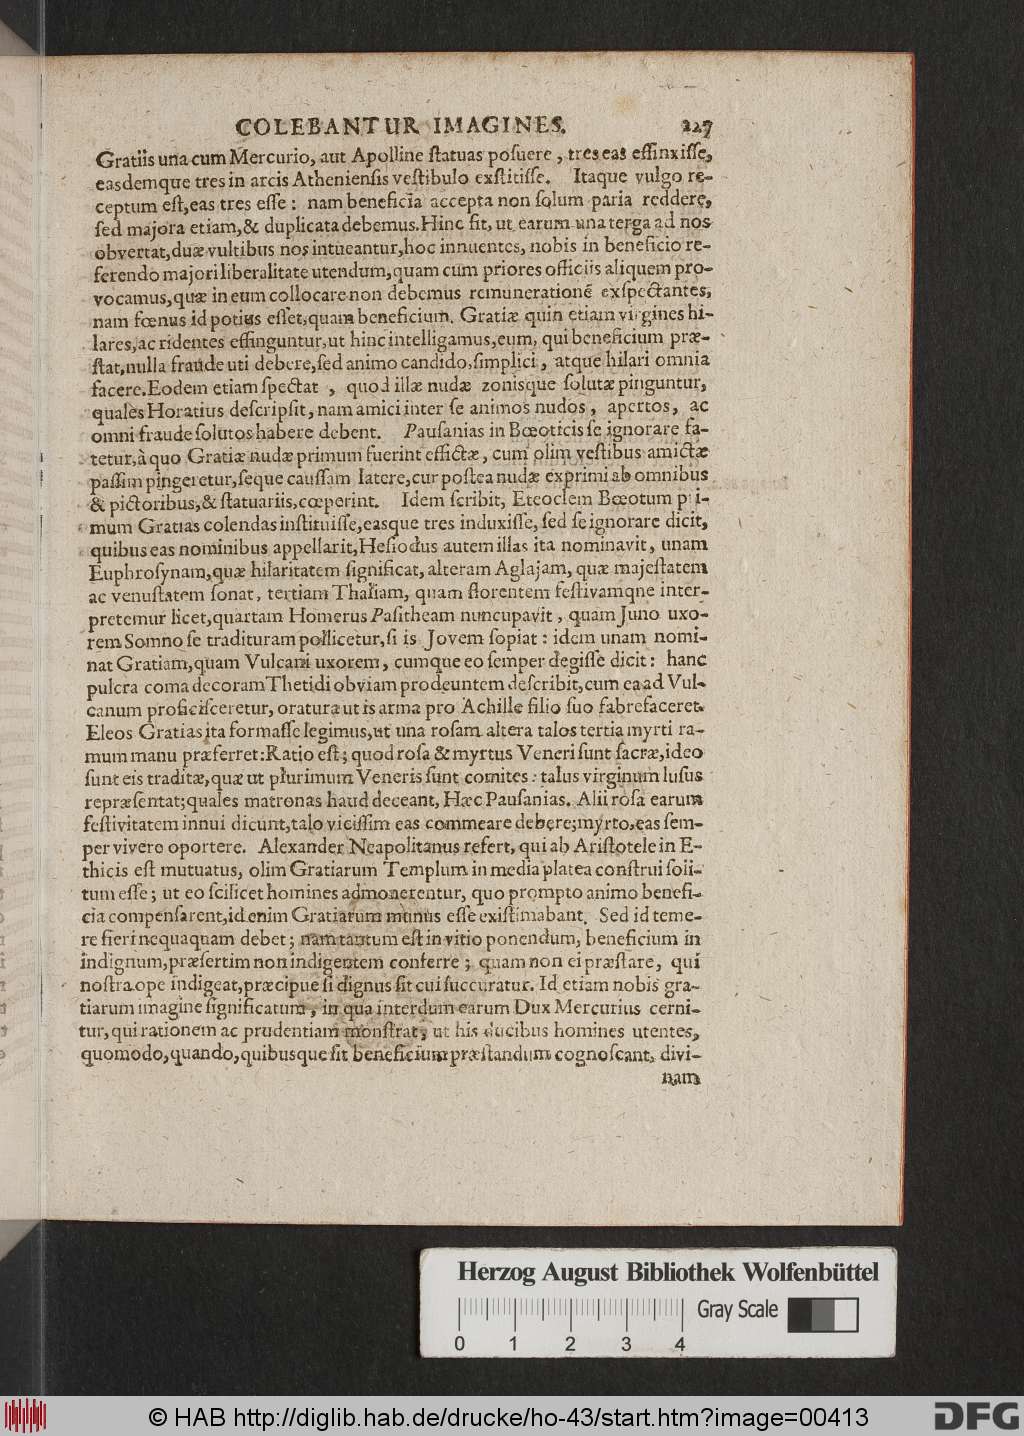 COLEBANTUR IMAGINES. 227
Gratiis una cum Mercurio, aut Apolline ſtatuas poſuere, tres eas effinxiſſe,
easdemque tres in arcis Athenienſis veſtibulo exſtitiſſe. Itaque vulgo re-
ceptum eſt, eas tres eſſe: nam beneficia accepta non ſolum paria reddere,
ſed majora etiam, & duplicata debemus. Hinc fit, ut earum una terga ad nos
obvertat, duæ vultibus nos intueantur, hoc innuentes, nobis in beneficio re-
ferendo majori liberalitate utendum, quam cum priores officiis aliquem pro-
vocamus, quæ in eum collocare non debemus remunerationē exſpectantes,
nam fœnus id potius eſſet, quam beneficium. Gratiæ quin etiam virgines hi-
lares, ac ridentes effinguntur, ut hinc intelligamus, eum, qui beneficium præ-
ſtat, nulla fraude uti debere, ſed animo candido, ſimplici, atque hilari omnia
facere. Eodem etiam ſpectat, quod illæ nudæ zonisque ſolutæ pinguntur,
quales Horatius deſcripſit, nam amici inter ſe animos nudos, apertos, ac
omni fraude ſolutos habere debent. Pauſanias in Bœoticis ſe ignorare fa-
tetur, à quo Gratiæ nudæ primum fuerint effictæ, cum olim veſtibus amictæ
paſſim pingeretur, ſeque cauſſam latere, cur poſtea nudæ exprimi ab omnibus
& pictoribus, & ſtatuariis, cœperint. Idem ſcribit, Eteoclem Bœotum pri-
mum Gratias colendas inſtituiſſe, easque tres induxiſſe, ſed ſe ignorare dicit,
quibus eas nominibus appellarit, Heſiodus autem illas ita nominavit, unam
Euphroſynam, quæ hilaritatem ſignificat, alteram Aglajam, quæ majeſtatem
ac venuſtatem ſonat, tertiam Thaliam, quam florentem feſtivamqne inter-
pretemur licet, quartam Homerus Paſitheam nuncupavit, quam Juno uxo-
rem Somno ſe tradituram pollicetur, ſi is Jovem ſopiat: idem unam nomi-
nat Gratiam, quam Vulcani uxorem, cumque eo ſemper degiſſe dicit: hanc
pulcra coma decoram Thetidi obviam prodeuntem deſcribit, cum ea ad Vul-
canum proficiſceretur, oratura ut is arma pro Achille filio ſuo fabrefaceret.
Eleos Gratias ita formaſſe legimus, ut una roſam altera talos tertia myrti ra-
mum manu præferret: Ratio eſt; quod roſa & myrtus Veneri ſunt ſacræ, ideo
ſunt eis traditæ, quæ ut plurimum Veneris ſunt comites: talus virginum luſus
repræſentat; quales matronas haud deceant, Hæc Pauſanias. Alii roſa earum
feſtivitatem innui dicunt, talo viciſſim eas commeare debere; myrto, eas ſem-
per vivere oportere. Alexander Neapolitanus refert, qui ab Ariſtotele in E-
thicis eſt mutuatus, olim Gratiarum Templum in media platea conſtrui ſoli-
tum eſſe; ut eo ſcilicet homines admonerentur, quo prompto animo benefi-
cia compenſarent, id enim Gratiarum munus eſſe exiſtimabant. Sed id teme-
re fieri nequaquam debet; nam tantum eſt in vitio ponendum, beneficium in
indignum, præſertim non indigentem conferre; quam non ei præſtare, qui
noſtra ope indigeat, præcipue ſi dignus ſit cui ſuccuratur. Id etiam nobis gra-
tiarum imagine ſignificatum, in qua interdum earum Dux Mercurius cerni-
tur, qui rationem ac prudentiam monſtrat, ut his ducibus homines utentes,
quomodo, quando, quibusque ſit beneficium præſtandum cognoſcant, divi-
nam
Herzog August Bibliothek Wolfenbüttel
0 1 2 3 4 Gray Scale
© HAB http://diglib.hab.de/drucke/ho-43/start.htm?image=00413 DFG